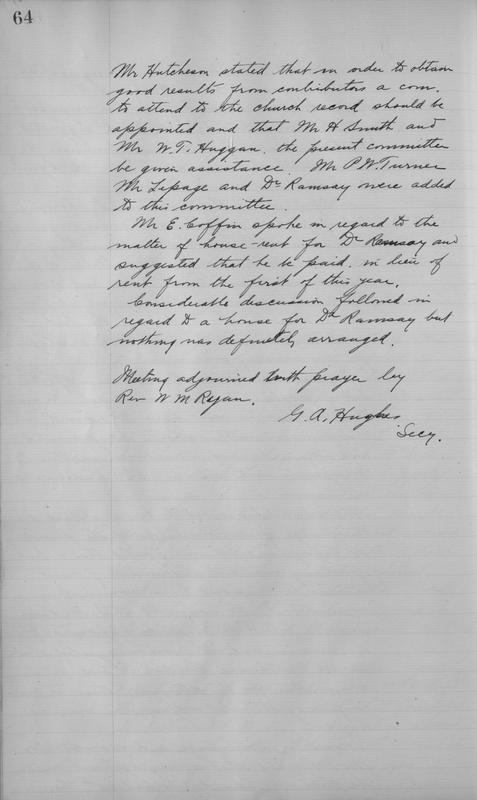 64
Mr Hutcheson stated that in order to obtain
good results from contributors a com.
to attend to the church record should be
appointed and that Mr H Smith and
Mr W. T. Huggan. the present committee
be given assistance. Mr P. W. Turner
Mr Lepage and Dr Ramsay were added
to this committee.
Mr E. Coffin spoke in regard to the
matter of house-rent for Dr Ramsay and
suggested that he be paid. in lieu of
rent from the first of this year.
Considerable discussion followed in
regard to a house for Dr Ramsay but
nothing was definitely arranged.
Meeting adjourned with prayer by
Rev W M Regan.
G. A. Hughes
Secy.